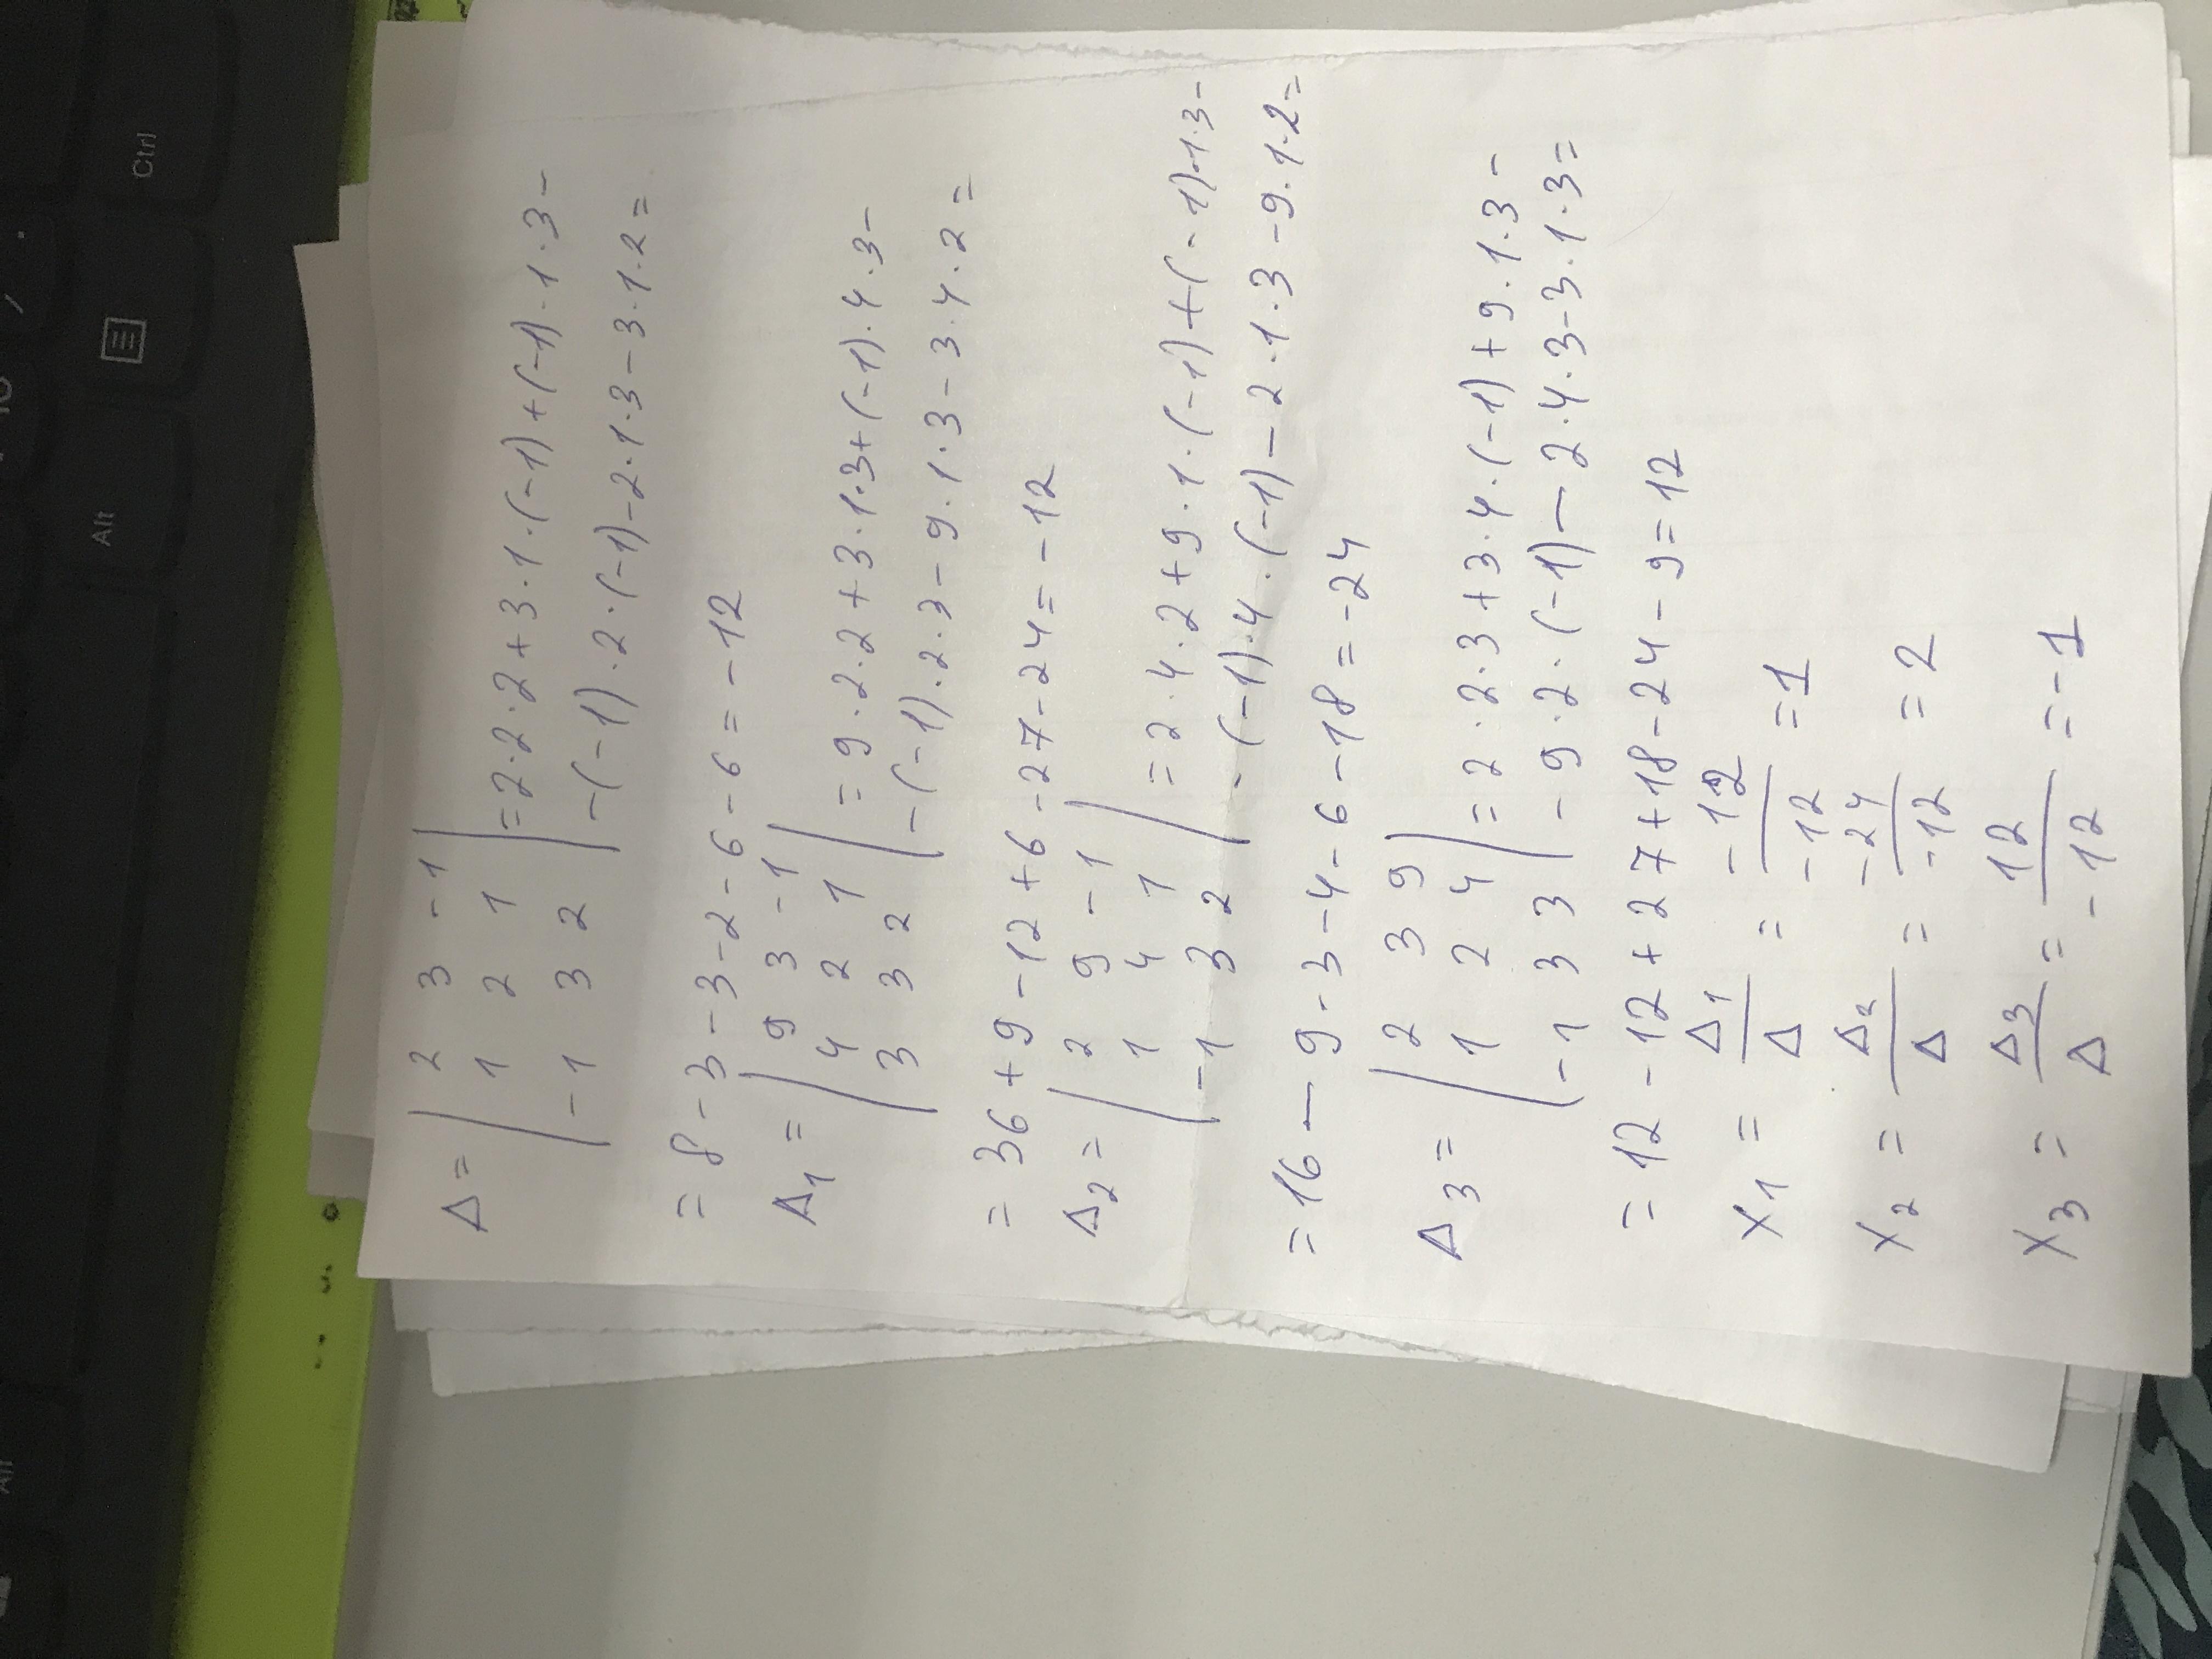 Δ = | 2 3 -1
1 2 1
-1 3 2 | = 2·2·2+3·1·(-1)+(-1)·1·3-
-(-1)·2·(-1)-2·1·3-3·1·2=
= 8-3-3-2-6-6=-12
Δ1 = | 9 3 -1
4 2 1
3 3 2 | = 9·2·2+3·1·3+(-1)·4·3-
-(-1)·2·3-9·1·3-3·4·2=
= 36+9-12+6-27-24=-12
Δ2 = | 2 9 -1
1 4 1
-1 3 2 | = 2·4·2+9·1·(-1)+(-1)·1·3-
-(-1)·4·(-1)-2·1·3-9·1·2=
= 16-9-3-4-6-18=-24
Δ3 = | 2 3 9
1 2 4
-1 3 3 | = 2·2·3+3·4·(-1)+9·1·3-
-9·2·(-1)-2·4·3-3·1·3=
= 12-12+27+18-24-9=12
x1 = Δ1/Δ = -12/-12 = 1
x2 = Δ2/Δ = -24/-12 = 2
x3 = Δ3/Δ = 12/-12 = -1
Alt
Ctrl
Alt